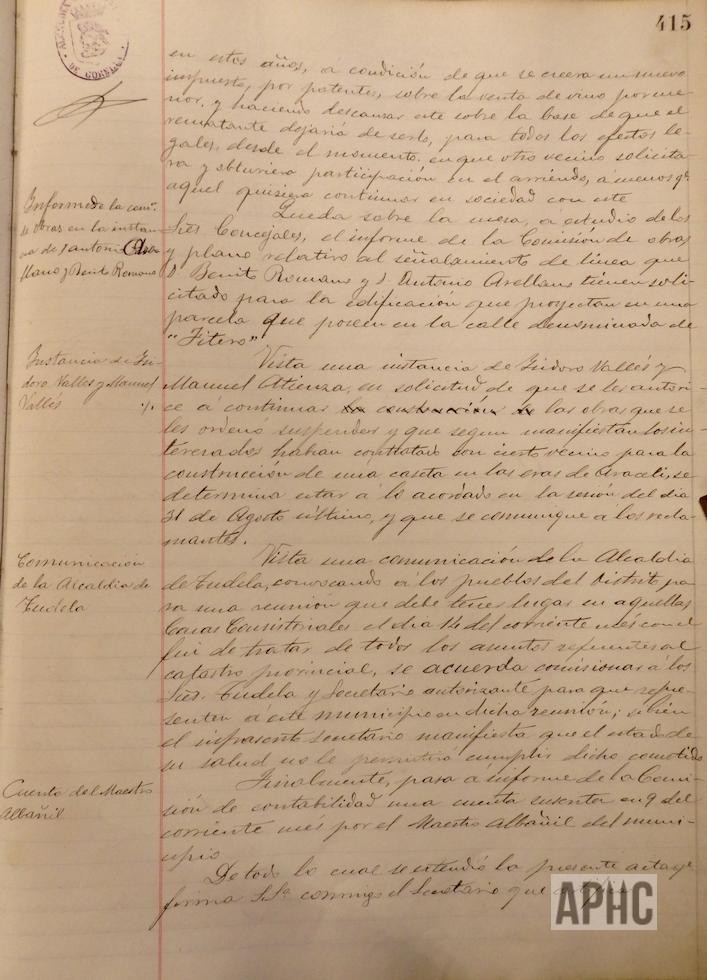 415
ALCALDIA
DE CORELLA
en estos años, a condición de que se creara un nuevo
impuesto, por patentes, sobre la venta de vino por me-
nor, y haciendo descansar este sobre la base de que el
rematante dejaria de serlo, para todos los efectos le-
gales, desde el momento en que otro vecino solicita-
ra y obtuviera participación en el arriendo, á menos qe.
aquel quisiera continuar en sociedad con este
Informe de la comn.
de obras en la instan
cia de Antonio Are-
llano y Benito Romano
Queda sobre la mesa, a estudio de los
Sres Concejales, el informe de la Comisión de obras
y plano relativo al señalamiento de linea que
D. Benito Romano y D. Antonio Arellano tienen soli-
citado para la edificación que proyectan en una
parcela que poseen en la calle denominada de
"Fitero"
Instancia de Isi-
doro Valles y Manuel
Vallés
Vista una instancia de Isidoro Vallés y
Manuel Atienza, en solicitud de que se les autori-
ce á continuar la construcción de las obras que se
les ordenó suspender y que segun manifiestan los in-
teresados habian contratado con cierto vecino para la
construcción de una caseta en las eras de Araceli, se
determina estar á lo acordado en la sesión del dia
31 de Agosto último, y que se comunique a los recla-
mantes.
Comunicación
de la Alcaldia de
Tudela
Vista una comunicación de la Alcaldia
de Tudela, convocando á los pueblos del Distrito pa
ra una reunión que debe tener lugar en aquellas
Casas Consistoriales el dia 14 del corriente mes con el
fin de tratar de todos los asuntos referentes al
catastro provincial, se acuerda comisionar á los
Sres. Tudela y Secretario autorizante para que repre-
senten á este municipio en dicha reunión; si bien
el infrascrito secretario manifiesta que el estado de
su salud no le permitirá cumplir dicho cometido
Cuenta del Maestro
Albañil
Finalmente, pasa a informe de la Comi-
sión de contabilidad una cuenta suscrita en 9 del
corriente mes por el Maestro Albañil del muni-
cipio
De todo lo cual se extendió la presente acta qe
firma S.Sa. conmigo el Secretario que
APHC